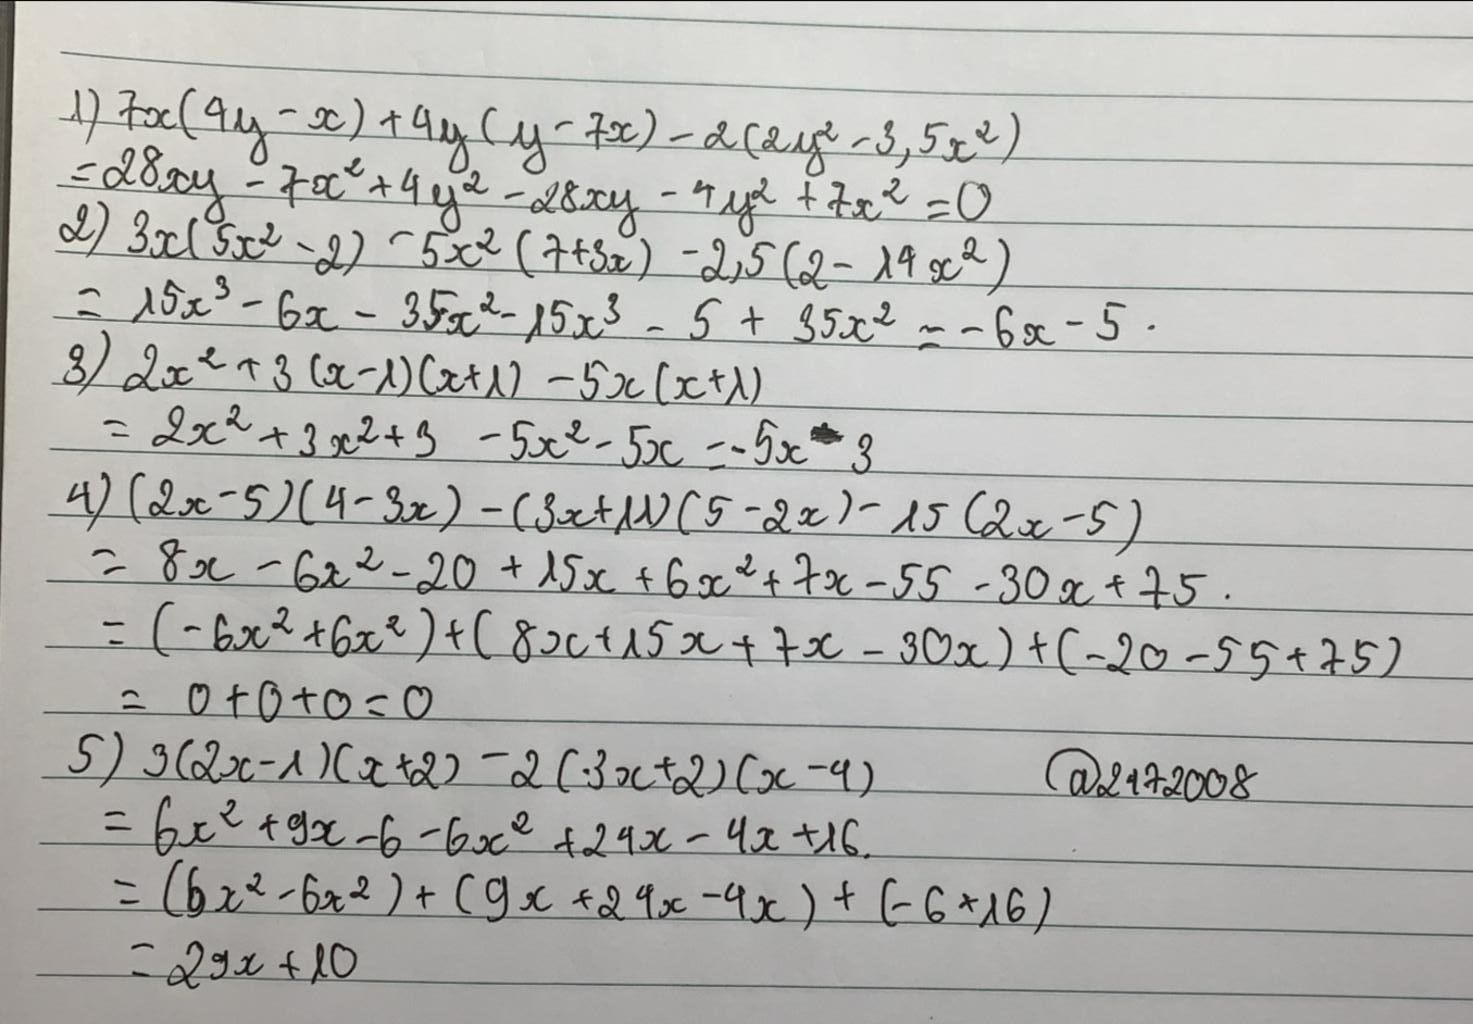 1) 7x(4y - x) + 4y(y - 7x) - 2(2y² - 3,5x²)
= 28xy - 7x² + 4y² - 28xy - 4y² + 7x² = 0
2) 3x(5x² - 2) - 5x²(7+3x) - 2,5(2 - 14x²)
= 15x³ - 6x - 35x² - 15x³ - 5 + 35x² = -6x - 5.
3) 2x² + 3(x-1)(x+1) - 5x(x+1)
= 2x² + 3x² + 3 - 5x² - 5x = -5x - 3
4) (2x-5)(4-3x) - (3x+11)(5-2x) - 15(2x-5)
= 8x - 6x² - 20 + 15x + 6x² + 7x - 55 - 30x + 75.
= (-6x² + 6x²) + (8x + 15x + 7x - 30x) + (-20 - 55 + 75)
= 0 + 0 + 0 = 0
5) 3(2x-1)(x+2) - 2(3x+2)(x-4)
@2172008
= 6x² + 9x - 6 - 6x² + 24x - 4x + 16.
= (6x² - 6x²) + (9x + 24x - 4x) + (-6 + 16)
= 29x + 10